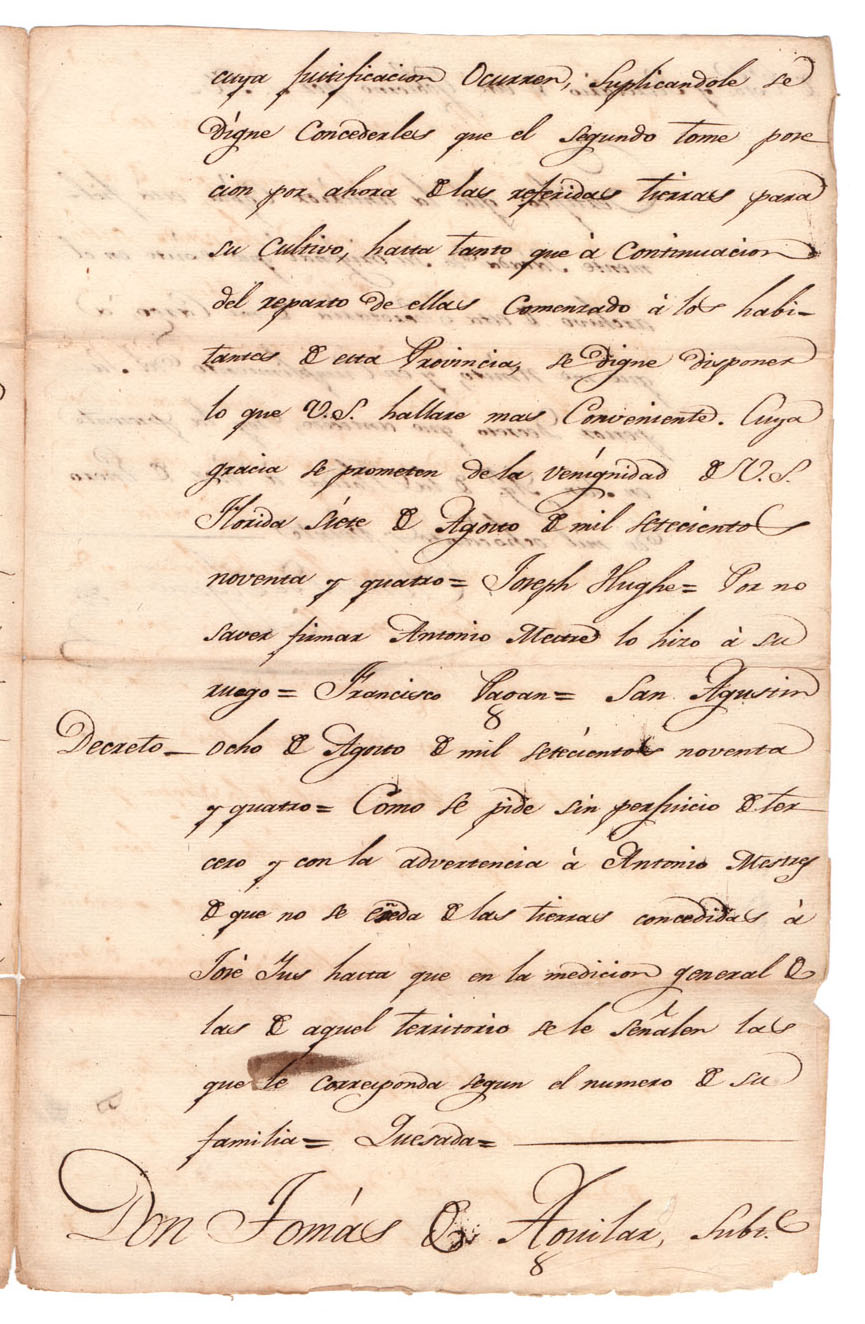 cuya justificacion Ocurren, suplicandole se
digne Concederles que el segundo tome pose
cion por ahora de las referidas tierras para
su Cultivo, hasta tanto que à Continuacion
del reparto de ellas Comenzado à los habi-
tantes de esta Provincia, se digne disponer
lo que V.S. hallare mas Conveniente. Cuya
gracia se prometen de la venignidad de V.S.
Florida siete de Agosto de mil setecientos
noventa y quatro= Joseph Hughe= Por no
saver firmar Antonio Mestre lo hizo à su
ruego= Francisco Pagan= San Agustin
Decreto_ ocho de Agosto de mil setecientos noventa
y quatro= Como se pide sin perjuicio de ter-
cero y con la advertencia à Antonio Mestre
de que no se exeda de las tierras concedidas à
José Jus hasta que en la medicion general de
las de aquel territorio se le señalen las
que le corresponda segun el numero de su
familia= Quesada=
Don Tomás de Aguilar, Subt.e